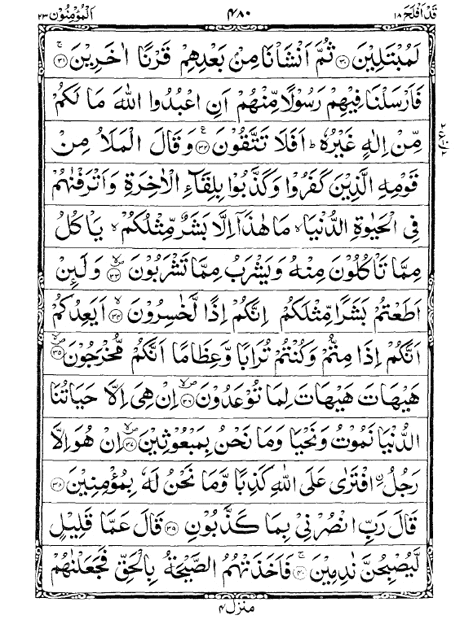 قَدْ اَفْلَحَ ١٨ ٤٨٠ اَلْمُؤْمِنُوْن ٢٣
لَمُبْتَلِيْنَ ﴿٣٠﴾ ثُمَّ اَنْشَاْنَا مِنْۢ بَعْدِهِمْ قَرْنًا اٰخَرِيْنَ ﴿٣١﴾
فَاَرْسَلْنَا فِيْهِمْ رَسُوْلًا مِّنْهُمْ اَنِ اعْبُدُوا اللّٰهَ مَا لَكُمْ
مِّنْ اِلٰهٍ غَيْرُهٗ ؕ اَفَلَا تَتَّقُوْنَ ﴿٣٢﴾ وَقَالَ الْمَلَاُ مِنْ
قَوْمِهِ الَّذِيْنَ كَفَرُوْا وَكَذَّبُوْا بِلِقَآءِ الْاٰخِرَةِ وَاَتْرَفْنٰهُمْ
فِى الْحَيٰوةِ الدُّنْيَا ۙ مَا هٰذَآ اِلَّا بَشَرٌ مِّثْلُكُمْ ۙ يَاْكُلُ
مِمَّا تَاْكُلُوْنَ مِنْهُ وَيَشْرَبُ مِمَّا تَشْرَبُوْنَ ﴿٣٣﴾ وَلَئِنْ
اَطَعْتُمْ بَشَرًا مِّثْلَكُمْ اِنَّكُمْ اِذًا لَّخٰسِرُوْنَ ﴿٣٤﴾ اَيَعِدُكُمْ
اَنَّكُمْ اِذَا مِتُّمْ وَكُنْتُمْ تُرَابًا وَّعِظَامًا اَنَّكُمْ مُّخْرَجُوْنَ ﴿٣٥﴾
هَيْهَاتَ هَيْهَاتَ لِمَا تُوْعَدُوْنَ ﴿٣٦﴾ اِنْ هِىَ اِلَّا حَيَاتُنَا
الدُّنْيَا نَمُوْتُ وَنَحْيَا وَمَا نَحْنُ بِمَبْعُوْثِيْنَ ﴿٣٧﴾ اِنْ هُوَ اِلَّا
رَجُلُ ۨافْتَرٰى عَلَى اللّٰهِ كَذِبًا وَّمَا نَحْنُ لَهٗ بِمُؤْمِنِيْنَ ﴿٣٨﴾
قَالَ رَبِّ انْصُرْنِىْ بِمَا كَذَّبُوْنِ ﴿٣٩﴾ قَالَ عَمَّا قَلِيْلٍ
لَّيُصْبِحُنَّ نٰدِمِيْنَ ﴿٤٠﴾ فَاَخَذَتْهُمُ الصَّيْحَةُ بِالْحَقِّ فَجَعَلْنٰهُمْ
منزل ٤